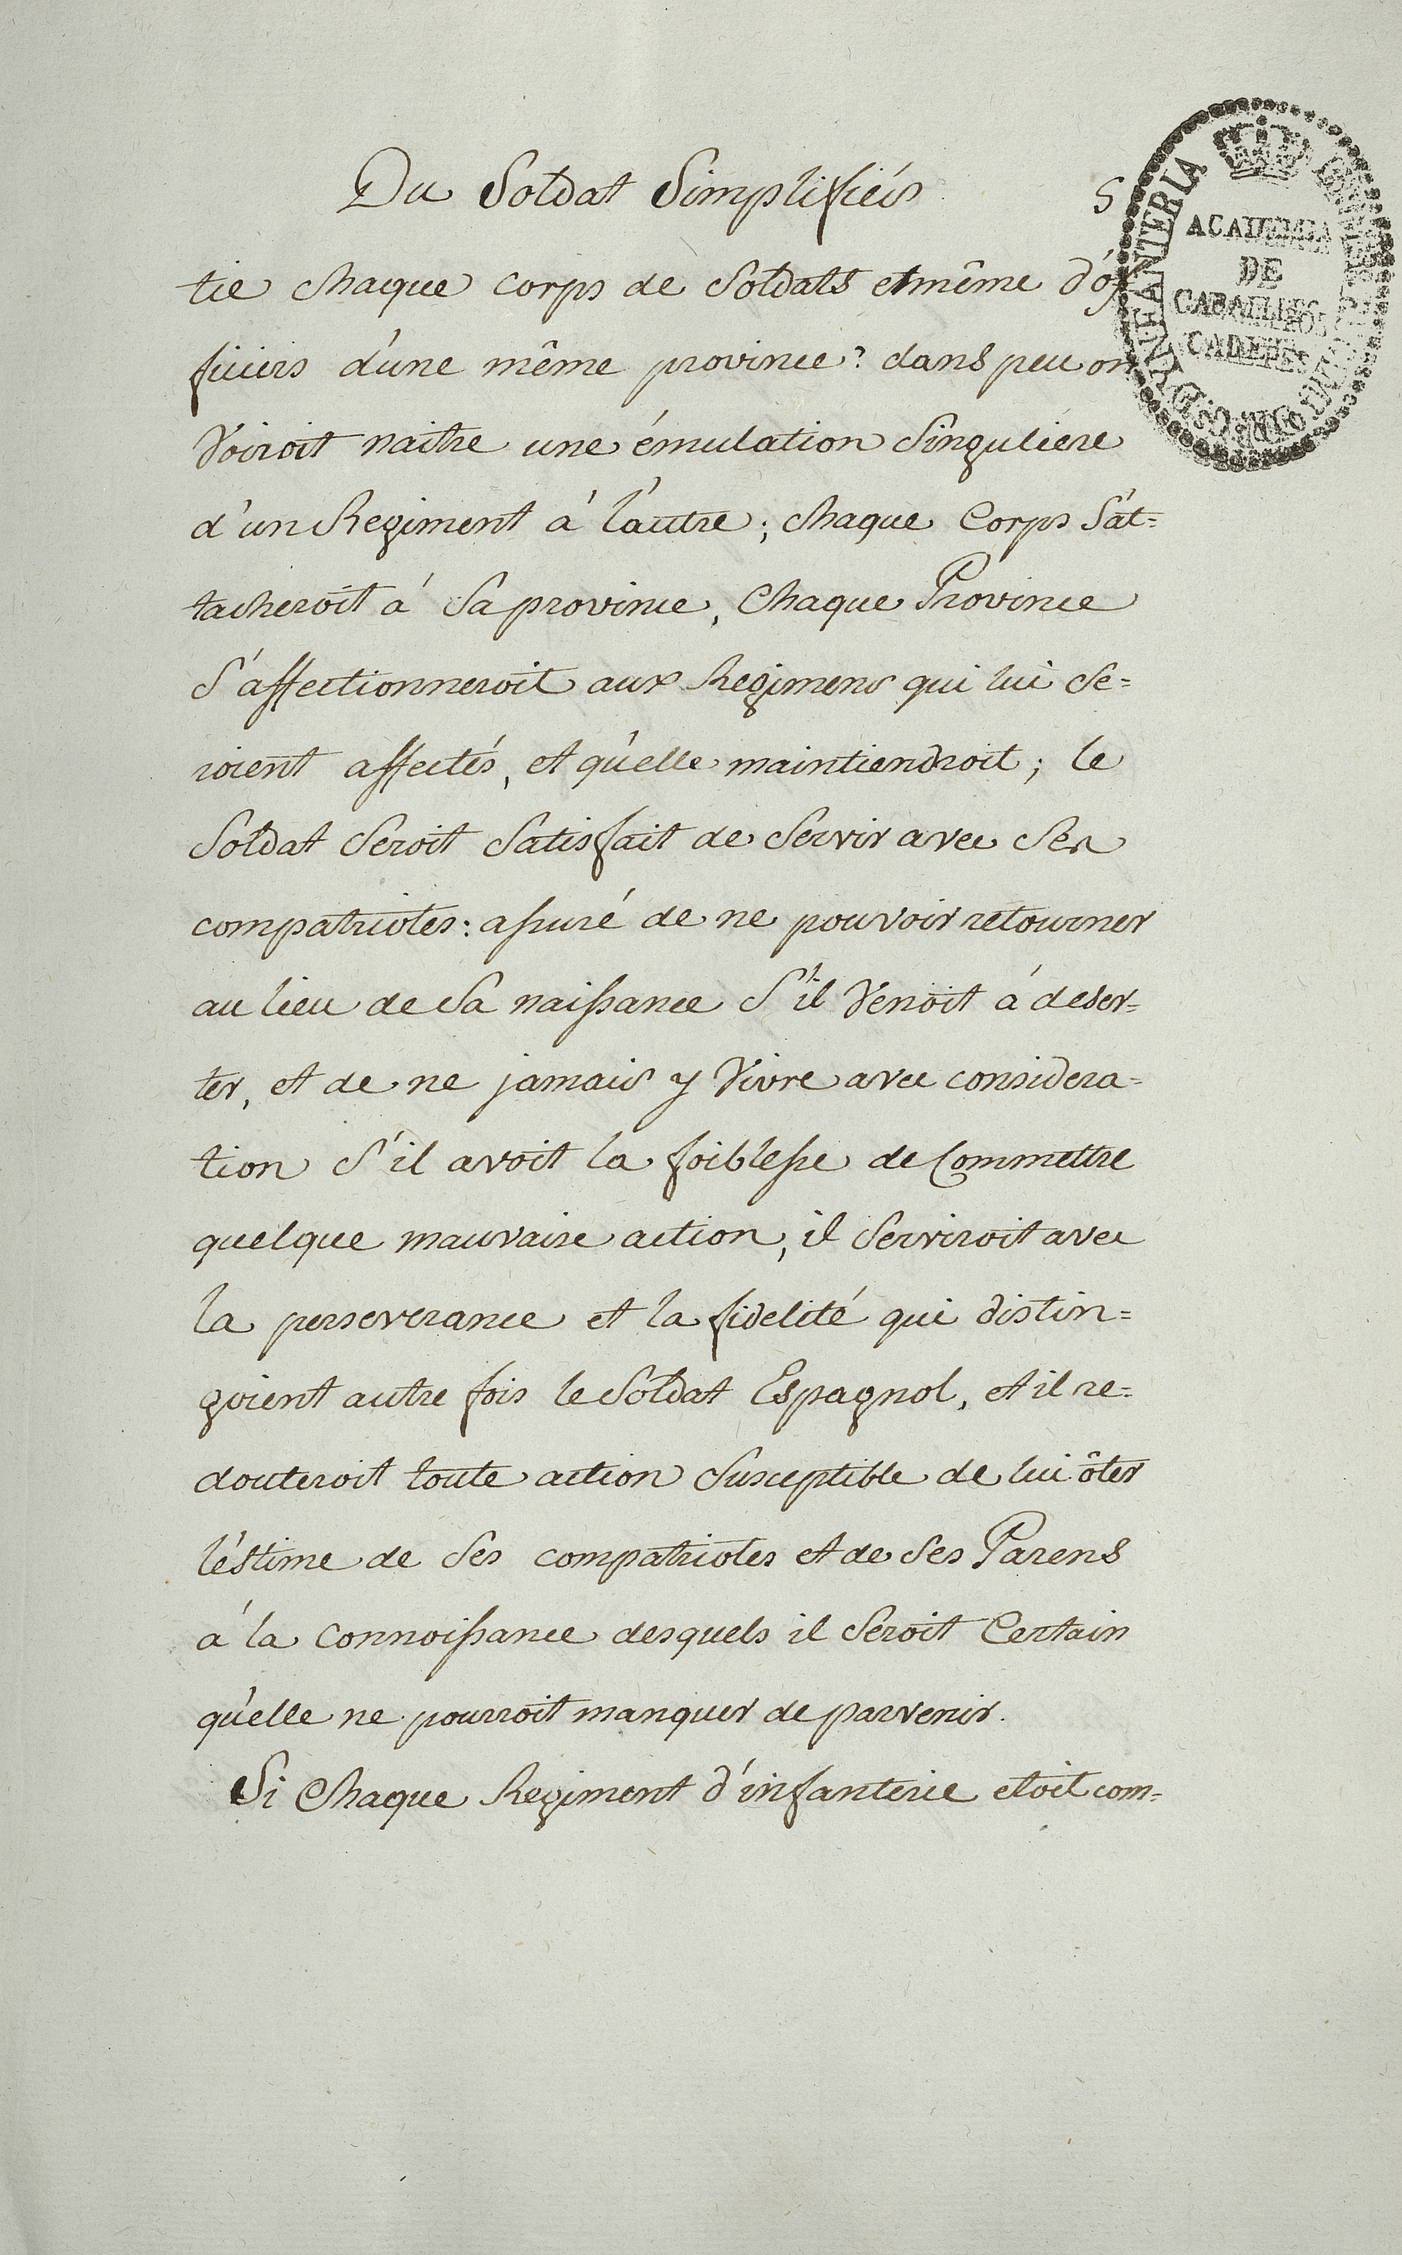 Du Soldat Simplifiés 5
tie chaque corps de Soldats et même d'óf
ficiers d'une même province? dans peu on
Voiroit naitre une émulation Singuliére
d'un Regiment á l'autre; chaque Corps S'at=
tacheroit á Sa province, Chaque Province
S'affectionneroit aux Regimens qui lui Se=
roient affectés, et qu'elle maintiendroit; le
Soldat Seroit Satisfait de Servir avec Ses
compatriotes: assuré de ne pouvoir retourner
au lieu de Sa naissance S'il Venoit á deser=
ter, et de ne jamais y Vivre avec considera=
tion S'il avoit la foiblesse de Commettre
quelque mauvaise action, il Serviroit avec
la perseverance et la fidelité qui distin=
goient autre fois le Soldat Espagnol, et il re=
douteroit toute action Susceptible de lui ôter
l'éstime de Ses compatriotes et de Ses Parens
á la connoissance desquels il Seroit Certain
qu'elle ne pourroit manquer de parvenir.
Si Chaque Regiment d'infanterie etoit com=
INFANTERIA
ACADEMIA
DE
CABALLEROS
CADETES